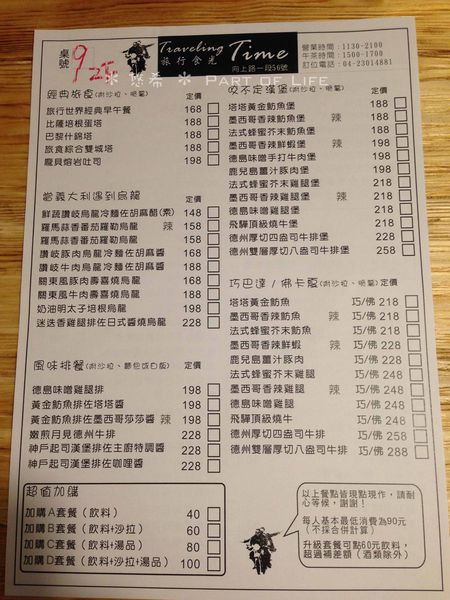 桌號 9 25
Traveling Time
旅行食光
向上路一段56號
營業時間：1130-2100
午茶時間：1500-1700
訂位電話：04-23014881
※ 悠希 ※ PART OF LIFE
經典旅食(附沙拉、脆薯) 定價
旅行世界經典早午餐 168
比薩培根蛋塔 188
巴黎什錦塔 188
旅食綜合雙城塔 188
龐貝熔岩吐司 198
當義大利遇到烏龍 定價
鮮蔬讚岐烏龍冷麵佐胡麻醋(素) 148
羅馬蒜香番茄羅勒烏龍 辣 158
羅馬蒜香番茄羅勒烏龍 158
讚岐豚肉烏龍冷麵佐胡麻醬 198
讚岐牛肉烏龍冷麵佐胡麻醬 198
關東風豚肉壽喜燒烏龍 198
關東風牛肉壽喜燒烏龍 198
奶油明太子培根烏龍 198
迷迭香雞腿排佐日式醬燒烏龍 228
風味排餐(附沙拉、麵包或白飯) 定價
德島味噌雞腿排 198
黃金魴魚排佐塔塔醬 198
黃金魴魚排佐墨西哥莎莎醬 辣 198
嫩煎月見德州牛排 228
神戶起司漢堡排佐主廚特調醬 228
神戶起司漢堡排佐咖哩醬 228
超值加購
加購A套餐（飲料） 40
加購B套餐（飲料+沙拉） 60
加購C套餐（飲料+湯品） 80
加購D套餐（飲料+沙拉+湯品） 100
咬不定漢堡(附沙拉、脆薯) 定價
塔塔黃金魴魚堡 188
墨西哥香辣魴魚堡 辣 188
法式蜂蜜芥末魴魚堡 188
墨西哥香辣鮮蝦堡 辣 198
德島味噌手打牛肉堡 198
鹿兒島薑汁豚肉堡 198
法式蜂蜜芥末雞腿堡 218
墨西哥香辣雞腿堡 辣 218
德島味噌雞腿堡 218
飛驒頂級燒牛堡 218
德州厚切四盎司牛排堡 218
德州雙層厚切八盎司牛排堡 258
巧巴達/佛卡夏(附沙拉、脆薯) 定價
塔塔黃金魴魚 巧/佛 218
墨西哥香辣魴魚 辣 巧/佛 218
法式蜂蜜芥末魴魚 巧/佛 218
墨西哥香辣鮮蝦 辣 巧/佛 218
鹿兒島薑汁豚肉 巧/佛 218
法式蜂蜜芥末雞腿 巧/佛 248
墨西哥香辣雞腿 辣 巧/佛 248
德島味噌雞腿 巧/佛 248
飛驒頂級燒牛 巧/佛 248
德州厚切四盎司牛排 巧/佛 248
德州雙層厚切八盎司牛排 巧/佛 288
以上餐點皆現點現作，請耐
心等候，謝謝！
每人基本最低消費為90元
（不採合併計算）
升級套餐可點60元飲料，
超過補差額（酒類除外）